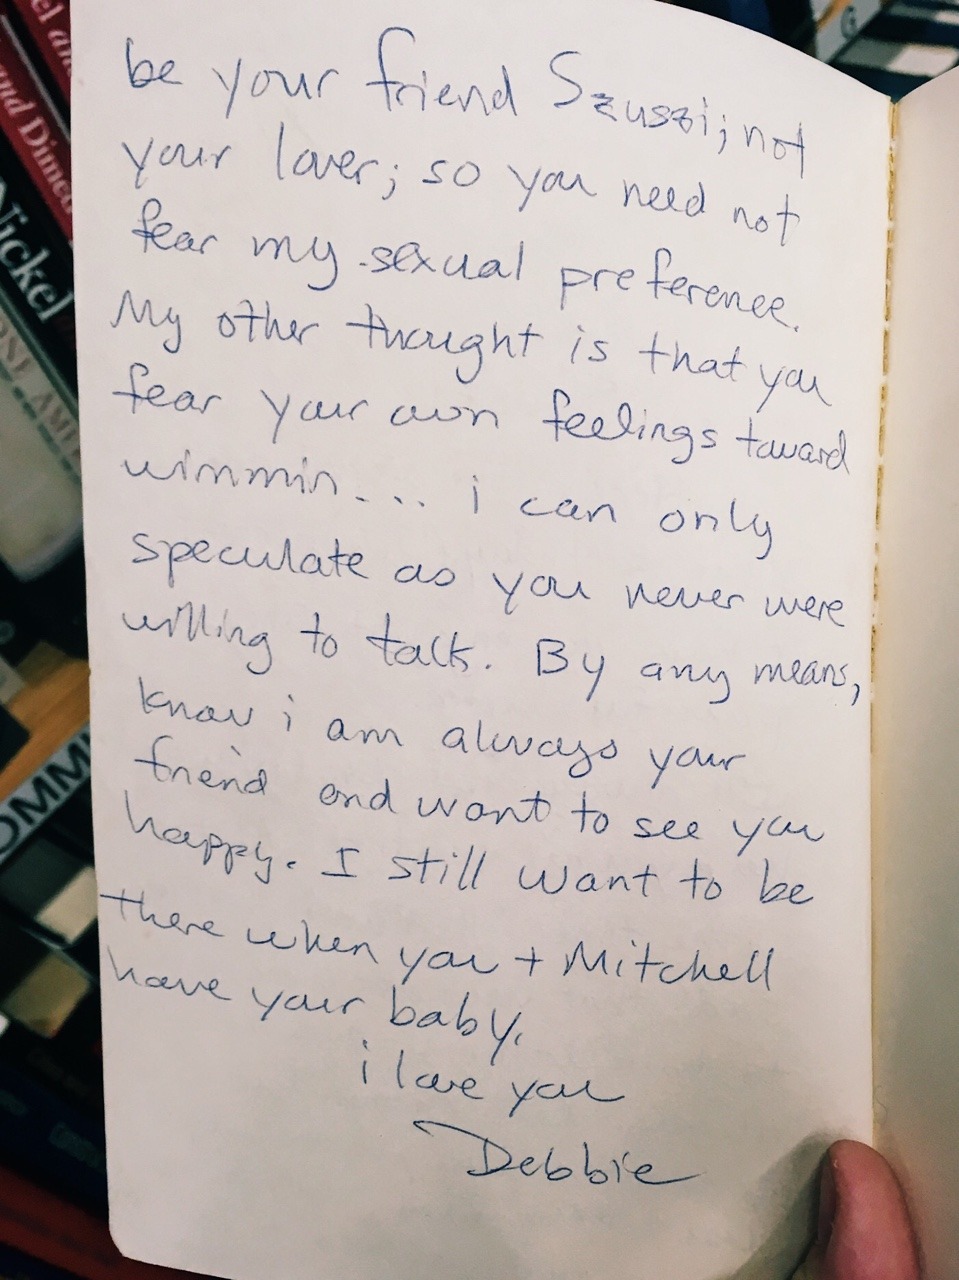 be your friend Szuszi; not
your lover; so you need not
fear my sexual preference.
My other thought is that you
fear your own feelings toward
wimmin... i can only
speculate as you never were
willing to talk. By any means,
know i am always your
friend and want to see you
happy. I still want to be
there when you + Mitchell
have your baby.
i love you
Debbie
and Dimed
Nickel
OMM
G